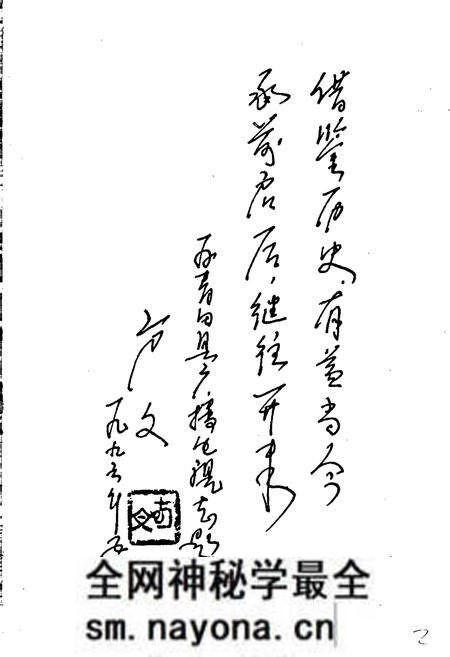 借鉴历史，有益当今
承前启后，继往开来
为青田县广播电视志题
卢文
一九九六年五
全网神秘学最全
sm.nayona.cn
2